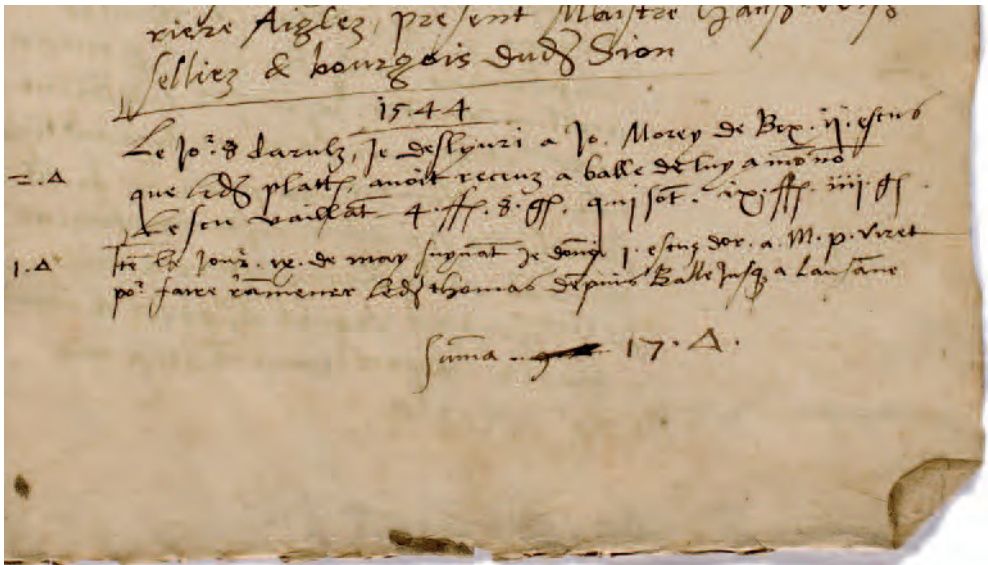 riere Aiglez, present Maistre
selliez & bourgois dud Sion
1544
Le jor. 8 davrilz, je deslyuri a Jo. Morey de Bex. ij. escus
=.Δ que led platt, avoit receuz a balle de luy a mō nō
Lescu vaillāt 4. ff. 8. gs. qui sōt. ix. ff. iiij gs.
1.Δ Itē le jour. ix. de may suyuāt je donné j. escuz dor. a. M. p. viret
por faire rāmener led thomas depuis Balle jusq a Lausāne
sūma 17.Δ.